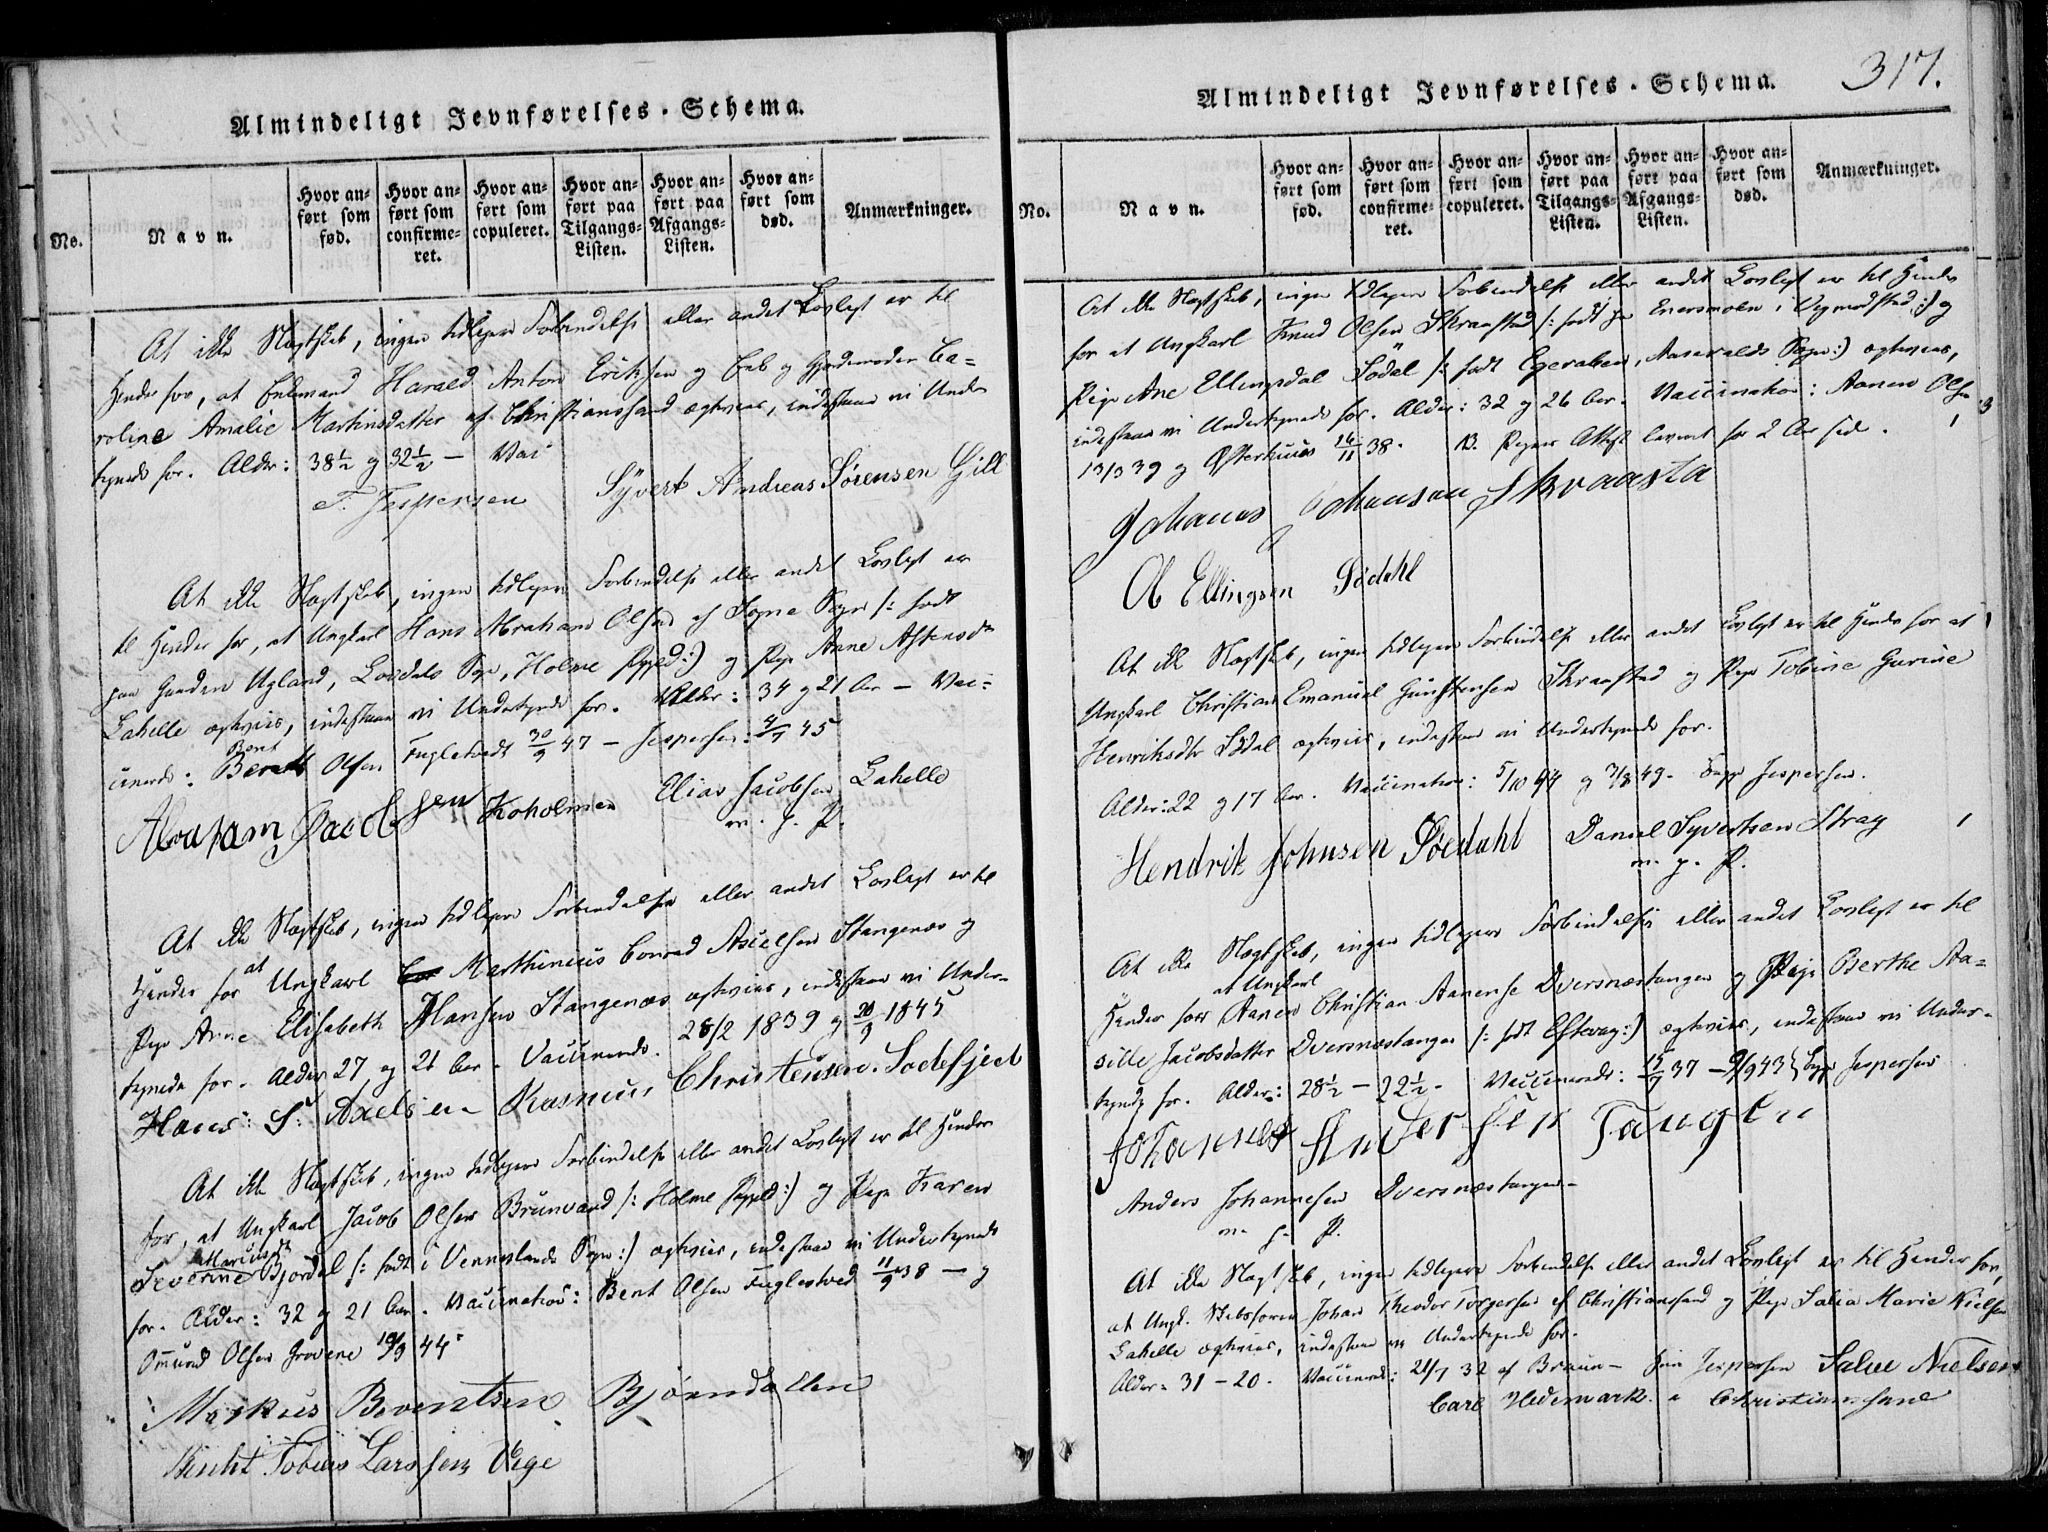 Almindeligt Jevnførelses-Schema.
No.
Navn.
Hvor anført som fød.
Hvor anført som confirmeret.
Hvor anført som copuleret.
Hvor anført paa Tilgangs-Listen.
Hvor anført paa Afgangs-Listen.
Hvor anført som død.
Anmærkninger.
At ikke Slægtskab, ingen tidligere Forbindelse eller andet Lovligt er til
Hinder for, at Enkemand Harald Anton Eriksen og Enke og Gjordemoder Ca-
roline Amalie Martinsdatter af Christianssand ægtevies, indestaae vi Under-
tegnede for. Alder: 38½ og 32½ — Vac
F. Jespersen Syvert Andreas Sørensen Gill
At ikke Slægtskab, ingen tidligere Forbindelse eller andet Lovligt er
til Hinder for, at Ungkarl Hans Abraham Olsen af Sogne Sogn /: født
paa Gaarden Ugland, Holme :/ og Pige Anne
Lahelle ægtevies, indestaae vi Undertegnede for. Alder: 34 og 21 Aar — Vac-
cinerede: Bent Olsen Fuglestvedt 30/9 47 — Jespersen: 4/7 45
Abraham Jacobsen Koholmen Elias Jacobsen Lahelle
m. f. P.
At ikke Slægtskab, ingen tidligere Forbindelse eller andet Lovligt er til
Hinder for at Ungkarl Marthinius Conrad Axelsen Stangenæs og
Pige Anne Elisabeth Hansen Stangenæs ægtevies, indestaae vi Under-
tegnede for. Alder 27 og 21 Aar. Vaccinerede. 28/2 1839 og 20/9 1845
Hans: S: Axelsen Rasmus Christensen. Sodefjed
At ikke Slægtskab, ingen tidligere Forbindelse eller andet Lovligt er til Hinder
for, at Ungkarl Jacob Olsen Brunvand /: Holme :/ og Pige Karen
Severine Marcusdtr Bjordal /: født i Venneslands Sogn :/ ægtevies, indestaae vi Undertegnede
for. Alder: 32 og 21 Aar. Vaccination: Bent Olsen Fuglestved 11/9 38 — og
Omund Olsen Grovene 19/9 44
Markus Berentsen Bjørndalen
Tobias Larssen Vege
317.
Almindeligt Jevnførelses-Schema.
No.
Navn.
Hvor anført som fød.
Hvor anført som confirmeret.
Hvor anført som copuleret.
Hvor anført paa Tilgangs-Listen.
Hvor anført paa Afgangs-Listen.
Hvor anført som død.
Anmærkninger.
At ikke Slægtskab, ingen tidligere Forbindelse eller andet Lovligt er til Hinder
for at Ungkarl Knud Olsen Skraastad /: født paa :/ og
Pige Ane Ellingsdal Sødal /: født Egeraben, Aaseralds Sogn :/ ægtevies,
indestaae vi Undertegnede for. Alder: 32 og 26 Aar. Vaccination: Aanen Olsen
13/3 39 og Østerhuus 16/11 38. NB. Pigens Attest leveret for 2 Aar siden.
Johanes Johansen Skraasta
Ol Ellingsen Sødahl
At ikke Slægtskab, ingen tidligere Forbindelse eller andet Lovligt er til Hinder for at
Ungkarl Christian Emanuel Gunstensen Skraastad og Pige Tobine Gurine
Henriksdtr Sødal ægtevies, indestaae vi Undertegnede for.
Alder: 22 og 17 Aar. Vaccination: 5/10 44 og 3/8 49. Jespersen.
Hendrik Johnsen Søedahl Daniel Syvertsen Strag
m. f. P.
At ikke Slægtskab, ingen tidligere Forbindelse eller andet Lovligt er til
Hinder for at Ungkarl Aanen Christian Aanense Dversnæstangen og Pige Berthe Aa-
sille Jacobsdatter Dversnæstangen /: født Eftevag :/ ægtevies, indestaae vi Under-
tegnede for. Alder: 28½ — 22½. Vaccinerede: 15/9 37 — 9/9 43 Jespersen
Johannes Andersen Tangen
Anders Johannesen Dversnæstangen
m. f. P.
At ikke Slægtskab, ingen tidligere Forbindelse eller andet Lovligt er til Hinder for,
at Ungk. Johan Theodor Torgersen af Christianssand og Pige Salia Marie Nielsen
Lahelle ægtevies, indestaae vi Undertegnede for.
Alder: 31 — 20. Vaccinerede: 21/7 32 af Braun — Jespersen Salve Nielsen
Carl Hedemark Christianssand